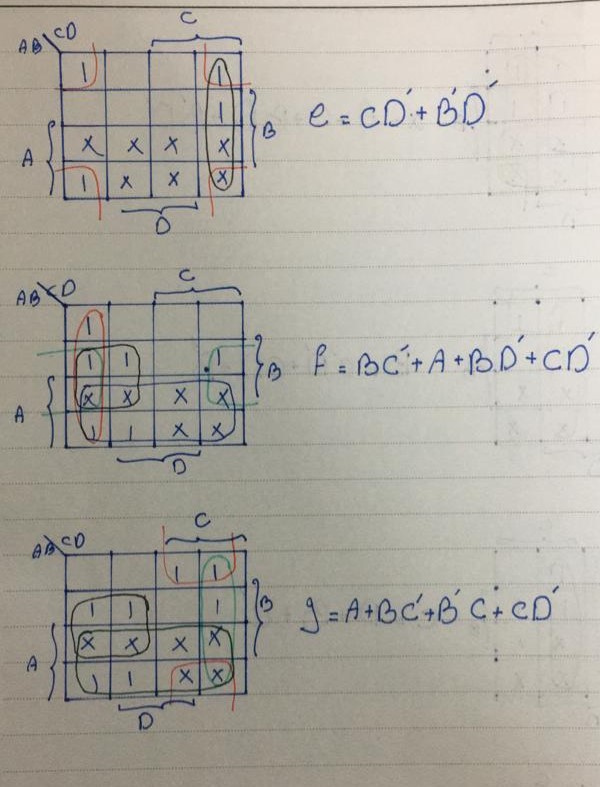 C
AB CD
1 1
1 B e = CD' + B'D'
A X X X X
1 X X X
D
C
AB CD
1
1 1 1 B f = BC' + A + BD' + CD'
A X X X X
1 1 X X
D
C
AB CD
1 1
1 1 1 B g = A + BC' + B'C + CD'
A X X X X
1 1 X X
D